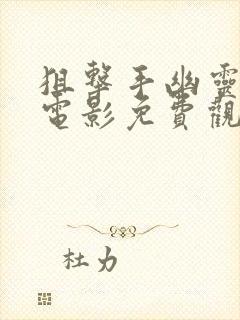 狙擊手幽靈
電影免費觀
杜力